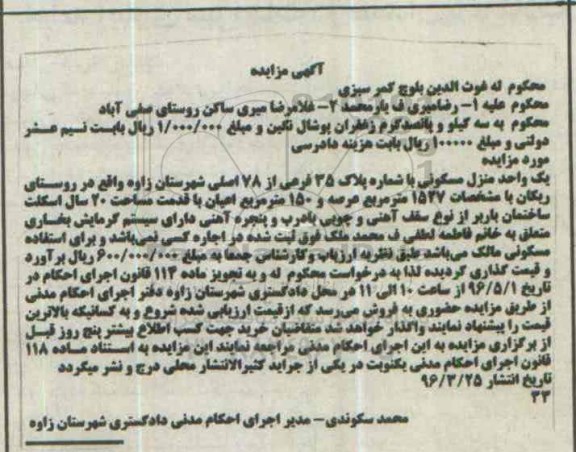 آگهی مزایده
محکوم له غوث الدین بلوچ کمر سبزی
محکوم علیه ۱- رضامیری ف یارمحمد ۲- غلامرضا میری ساکن روستای صفی آباد
محکوم به سه کیلو و پانصدگرم زعفران پوشال نگین و مبلغ ۱/۰۰۰/۰۰۰ ریال بابت نسیم عشر
دولتی و مبلغ ۱۰۰۰۰۰ ریال بابت هزینه دادرسی
مورد مزایده
یک واحد منزل مسکونی با شماره پلاک ۳۵ فرعی از ۷۸ اصلی شهرستان زاوه واقع در روستای
ریکان با مشخصات ۱۵۲۷ مترمربع عرصه و ۱۵۰ مترمربع اعیان با قدمت مساحت ۲۰ سال اسکلت
ساختمان باربر از نوع سقف آهنی و چوبی بادرب و پنجره آهنی دارای سیستم گرمایش بخاری
متعلق به خانم فاطمه لطفی ف محمد ملک فوق ثبت شده در اجاره کسی نمی‌باشد و برای استفاده
مسکونی مالک می‌باشد طبق نظریه ارزیاب وکارشناس جمعا به مبلغ ۶۰۰/۰۰۰/۰۰۰ ریال برآورد
و قیمت گذاری گردیده لذا به درخواست محکوم له و به تجویز ماده ۱۱۴ قانون اجرای احکام در
تاریخ ۹۶/۵/۱ از ساعت ۱۰ الی ۱۱ در محل دادگستری شهرستان زاوه دفتر اجرای احکام مدنی
از طریق مزایده حضوری به فروش می‌رسد که ازقیمت ارزیابی شده شروع و به کسانیکه بالاترین
قیمت را پیشنهاد نمایند واگذار خواهد شد متقاضیان خرید جهت کسب اطلاع بیشتر پنج روز قبل
از برگزاری مزایده به این اجرای احکام مدنی مراجعه نمایند این مزایده به استناد ماده ۱۱۸
قانون اجرای احکام مدنی یکنوبت در یکی از جراید کثیرالانتشار محلی درج و نشر میگردد
تاریخ انتشار ۹۶/۳/۲۵
۳۳
محمد سکوندی- مدیر اجرای احکام مدنی دادگستری شهرستان زاوه